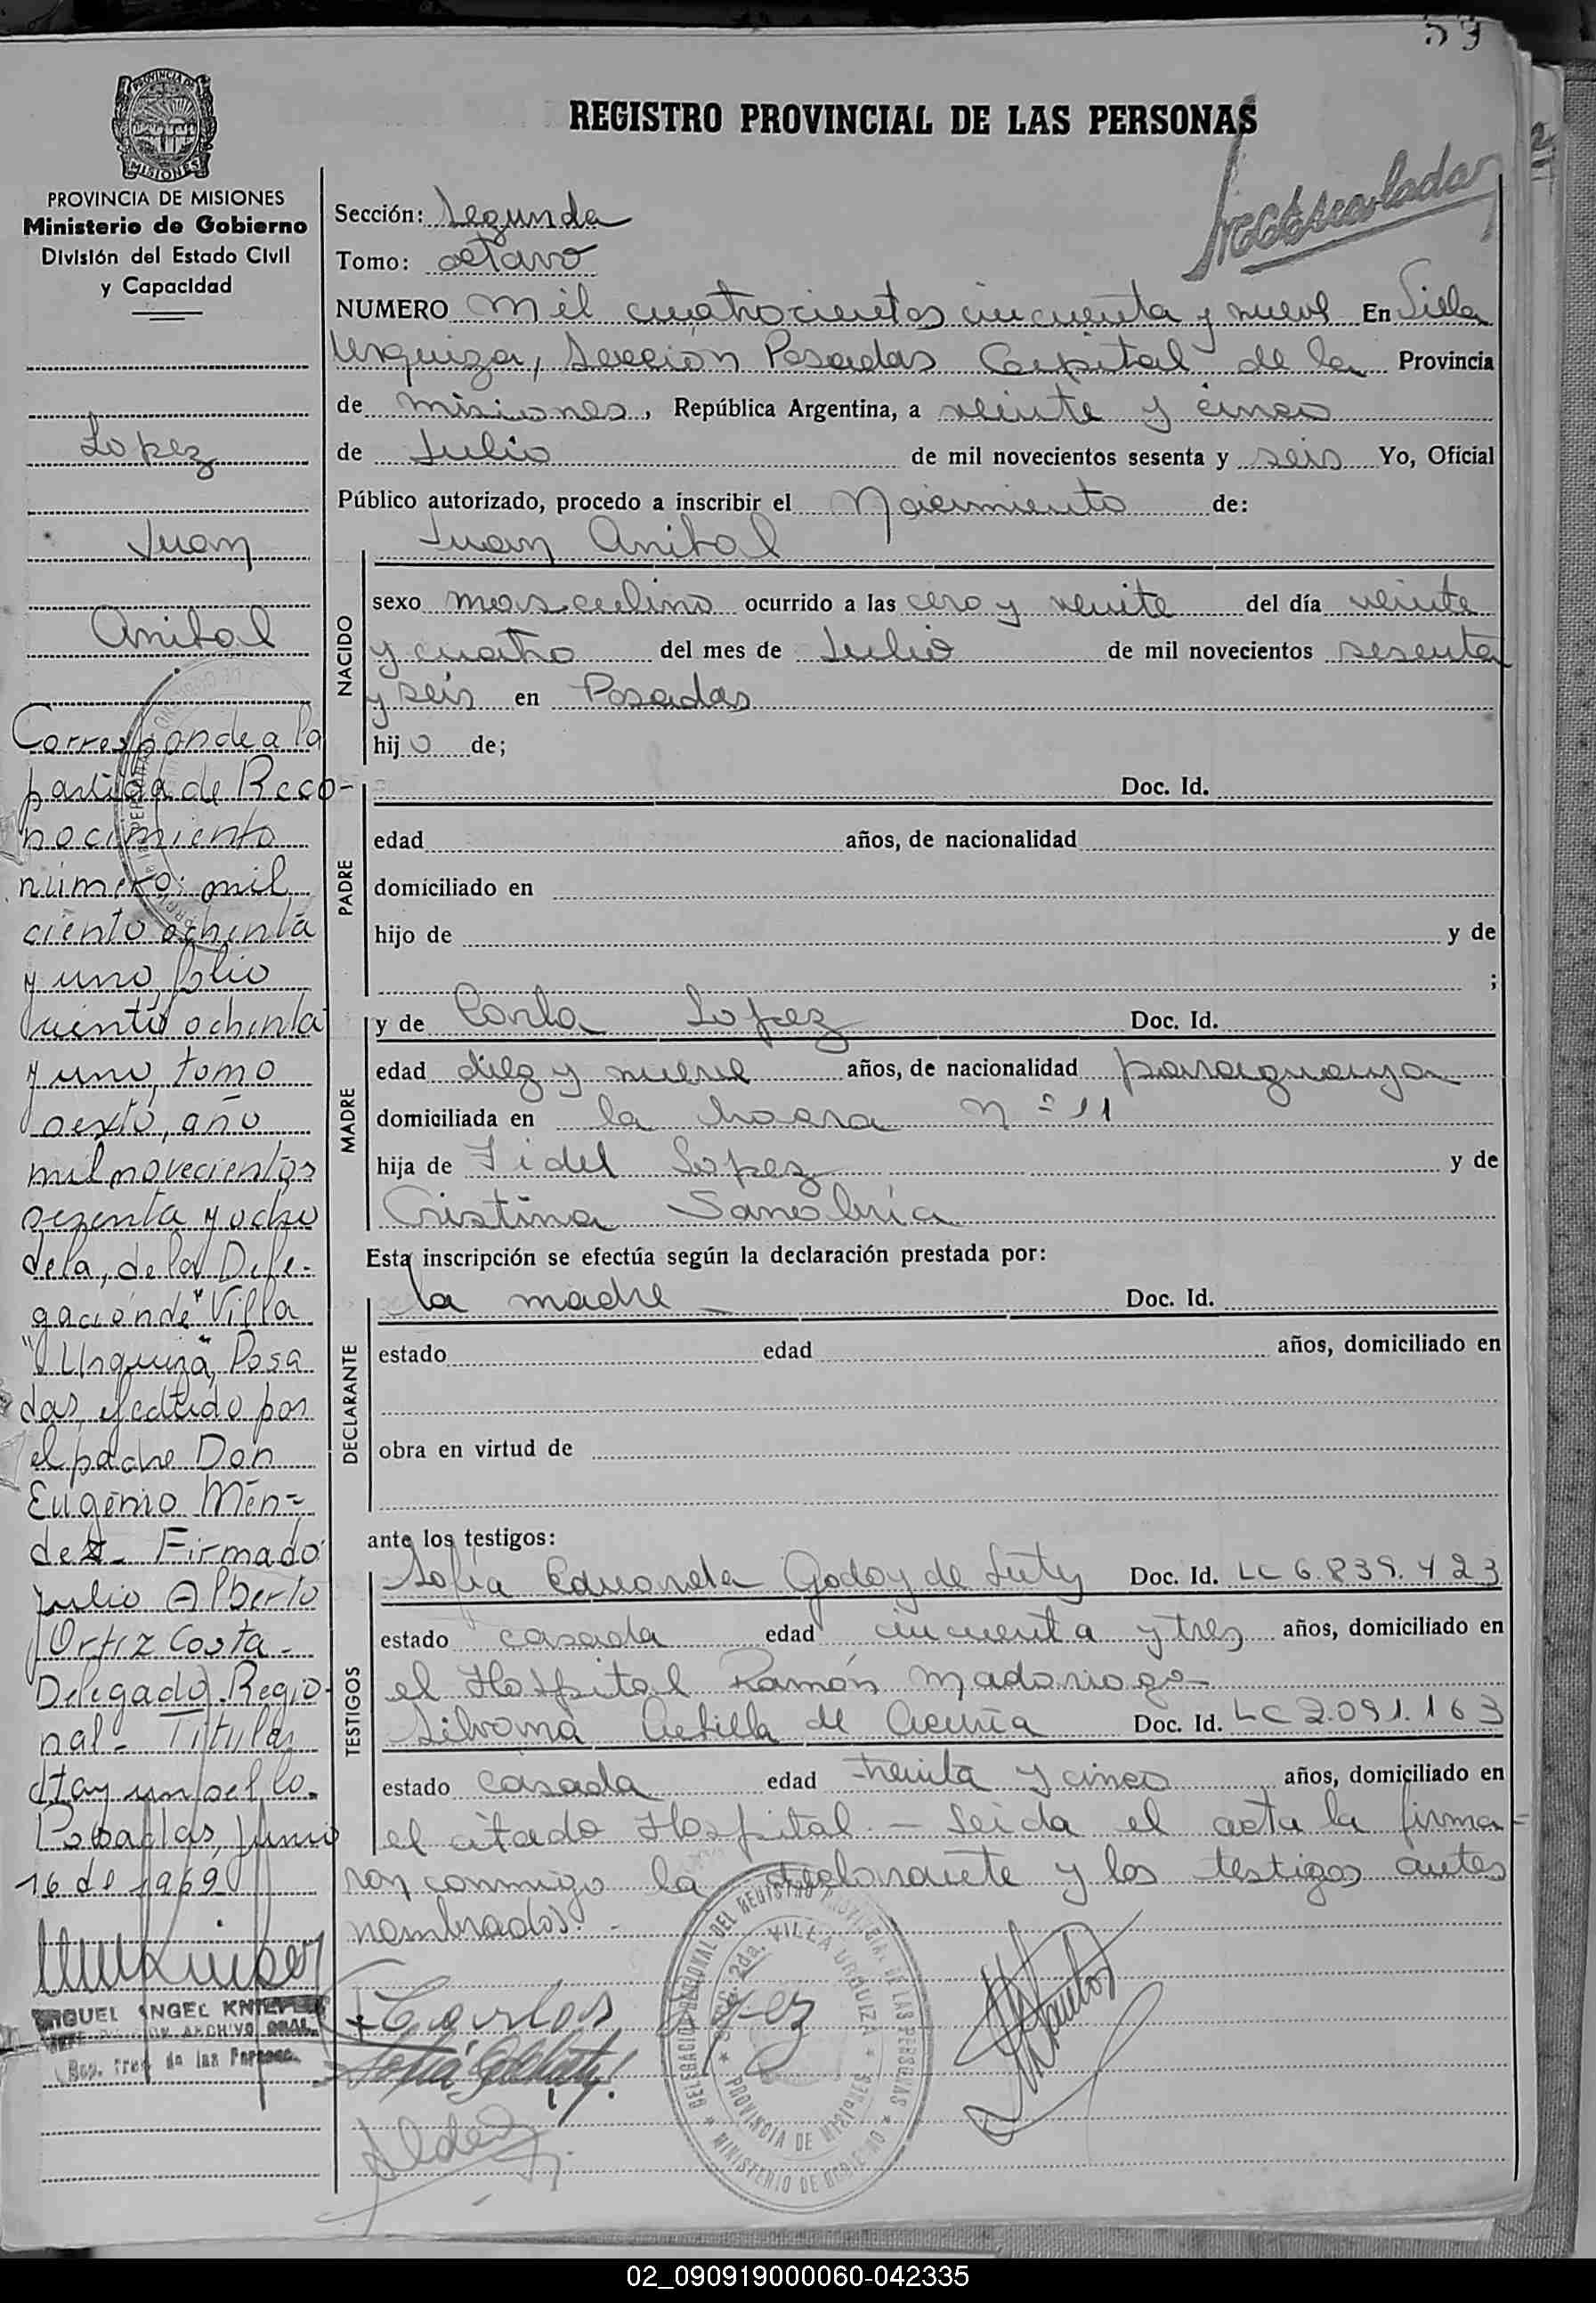 59
REGISTRO PROVINCIAL DE LAS PERSONAS
PROVINCIA DE MISIONES
MISIONES
PROVINCIA DE MISIONES
Ministerio de Gobierno
División del Estado Civil
y Capacidad
Lopez
Juan
Anibal
Corresponde a la
partida de Reco-
nocimiento
número: mil
ciento ochenta
y uno, folio
ciento ochenta
y uno, tomo
sexto, año
mil novecientos
sesenta y ocho
dela, de la Dele-
gación de "Villa
"Urquiza", Posa
das, efectuado por
el padre Don
Eugenio Mén-
dez - Firmado
Julio Alberto
Ortiz Costa -
Delegado Regio-
nal - Titular
Hay un sello.
Posadas, Junio
16 de 1969
MIGUEL ANGEL
ARCHIVO GRAL.
de las Personas
Sección: Segunda
Tomo: octavo
NUMERO mil cuatrocientos cincuenta y nueve En Villa
Urquiza, Sección Posadas Capital de la Provincia
de misiones, República Argentina, a veinte y cinco
de Julio de mil novecientos sesenta y seis Yo, Oficial
Público autorizado, procedo a inscribir el Nacimiento de:
NACIDO
Juan Anibal
sexo masculino ocurrido a las cero y veinte del día veinte
y cuatro del mes de Julio de mil novecientos sesenta
y seis en Posadas
hijo de;
PADRE
Doc. Id.
edad años, de nacionalidad
domiciliado en
hijo de y de
;
MADRE
y de Carla Lopez Doc. Id.
edad diez y nueve años, de nacionalidad paraguaya
domiciliada en la chacra Nº 11
hija de Fidel Lopez y de
Cristina Sanabria
Esta inscripción se efectúa según la declaración prestada por:
DECLARANTE
la madre Doc. Id.
estado edad años, domiciliado en
obra en virtud de
ante los testigos:
TESTIGOS
Sofia Eduarda Godoy de Doc. Id. LC 6.839.423
estado casada edad cincuenta y tres años, domiciliado en
el Hospital Ramón Madariaga
Silvana de Acuña Doc. Id. LC 2.091.163
estado casada edad treinta y cinco años, domiciliado en
el citado Hospital. - Leida el acta la firma-
ron conmigo la declarante y los testigos antes
nombrados. -
DELEGACION REGIONAL DEL REGISTRO PROVINCIAL DE LAS PERSONAS
SECC. 2da. VILLA URQUIZA
PROVINCIA DE MISIONES
MINISTERIO DE GOBIERNO
02_090919000060-042335